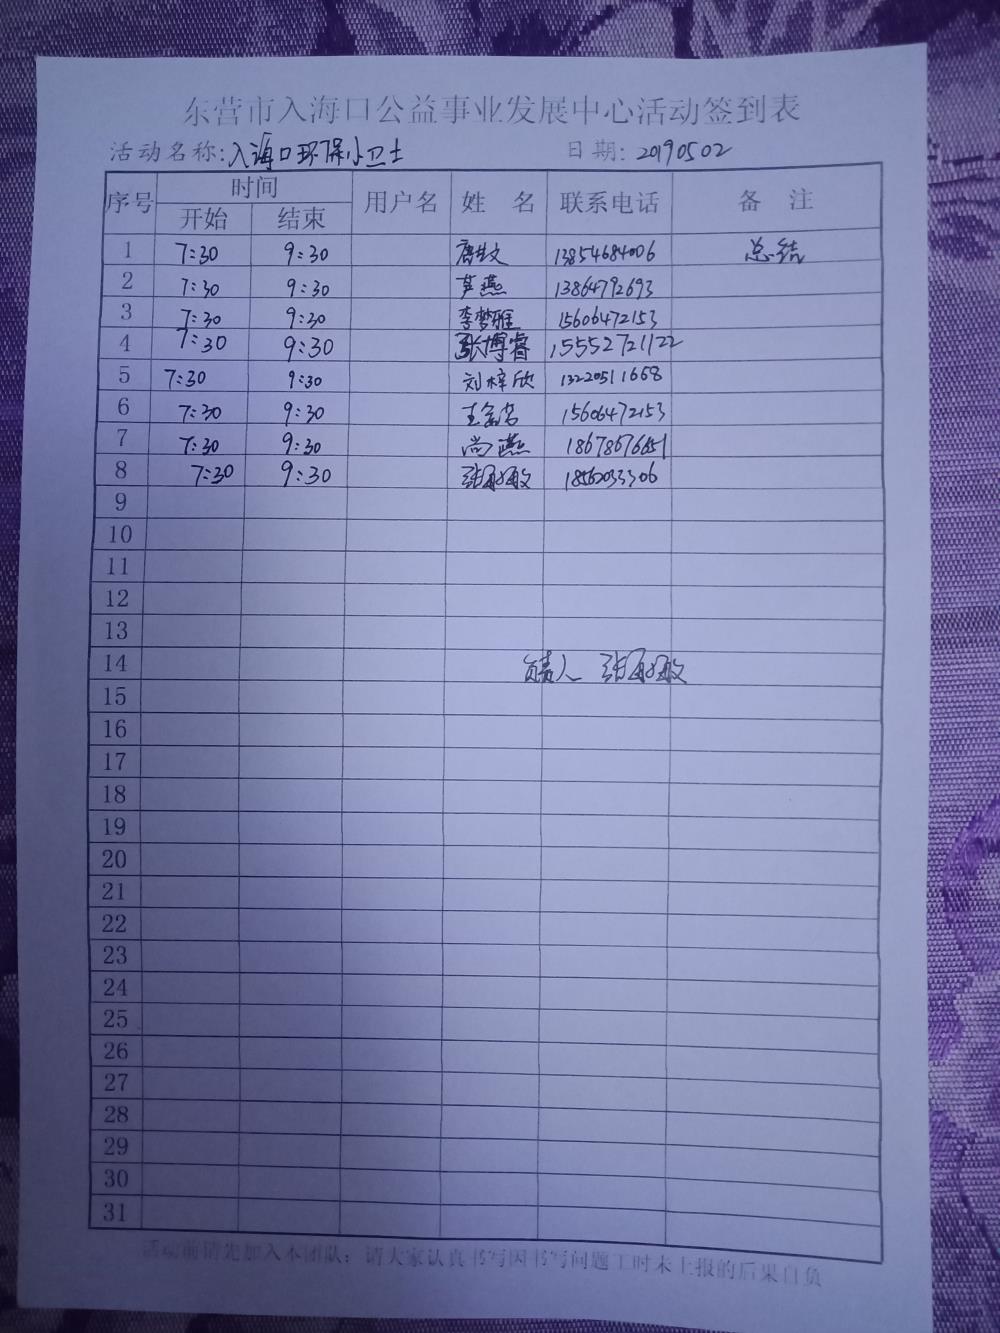 东营市入海口公益事业发展中心活动签到表
活动名称:入海口环保小卫士 日期:20190502
序号 时间 用户名 姓 名 联系电话 备 注
开始 结束
1 7:30 9:30 13854684006 总结
2 7:30 9:30 芦燕 13864792693
3 7:30 9:30 李梦雅 15606472153
4 7:30 9:30 张博睿 15552721122
5 7:30 9:30 刘梓欣 13220511668
6 7:30 9:30 15606472153
7 7:30 9:30 尚燕 18678676651
8 7:30 9:30 18562033306
9
10
11
12
13
14 负责人
15
16
17
18
19
20
21
22
23
24
25
26
27
28
29
30
31
活动前请先加入本团队;请大家认真书写因书写问题工时未上报的后果自负